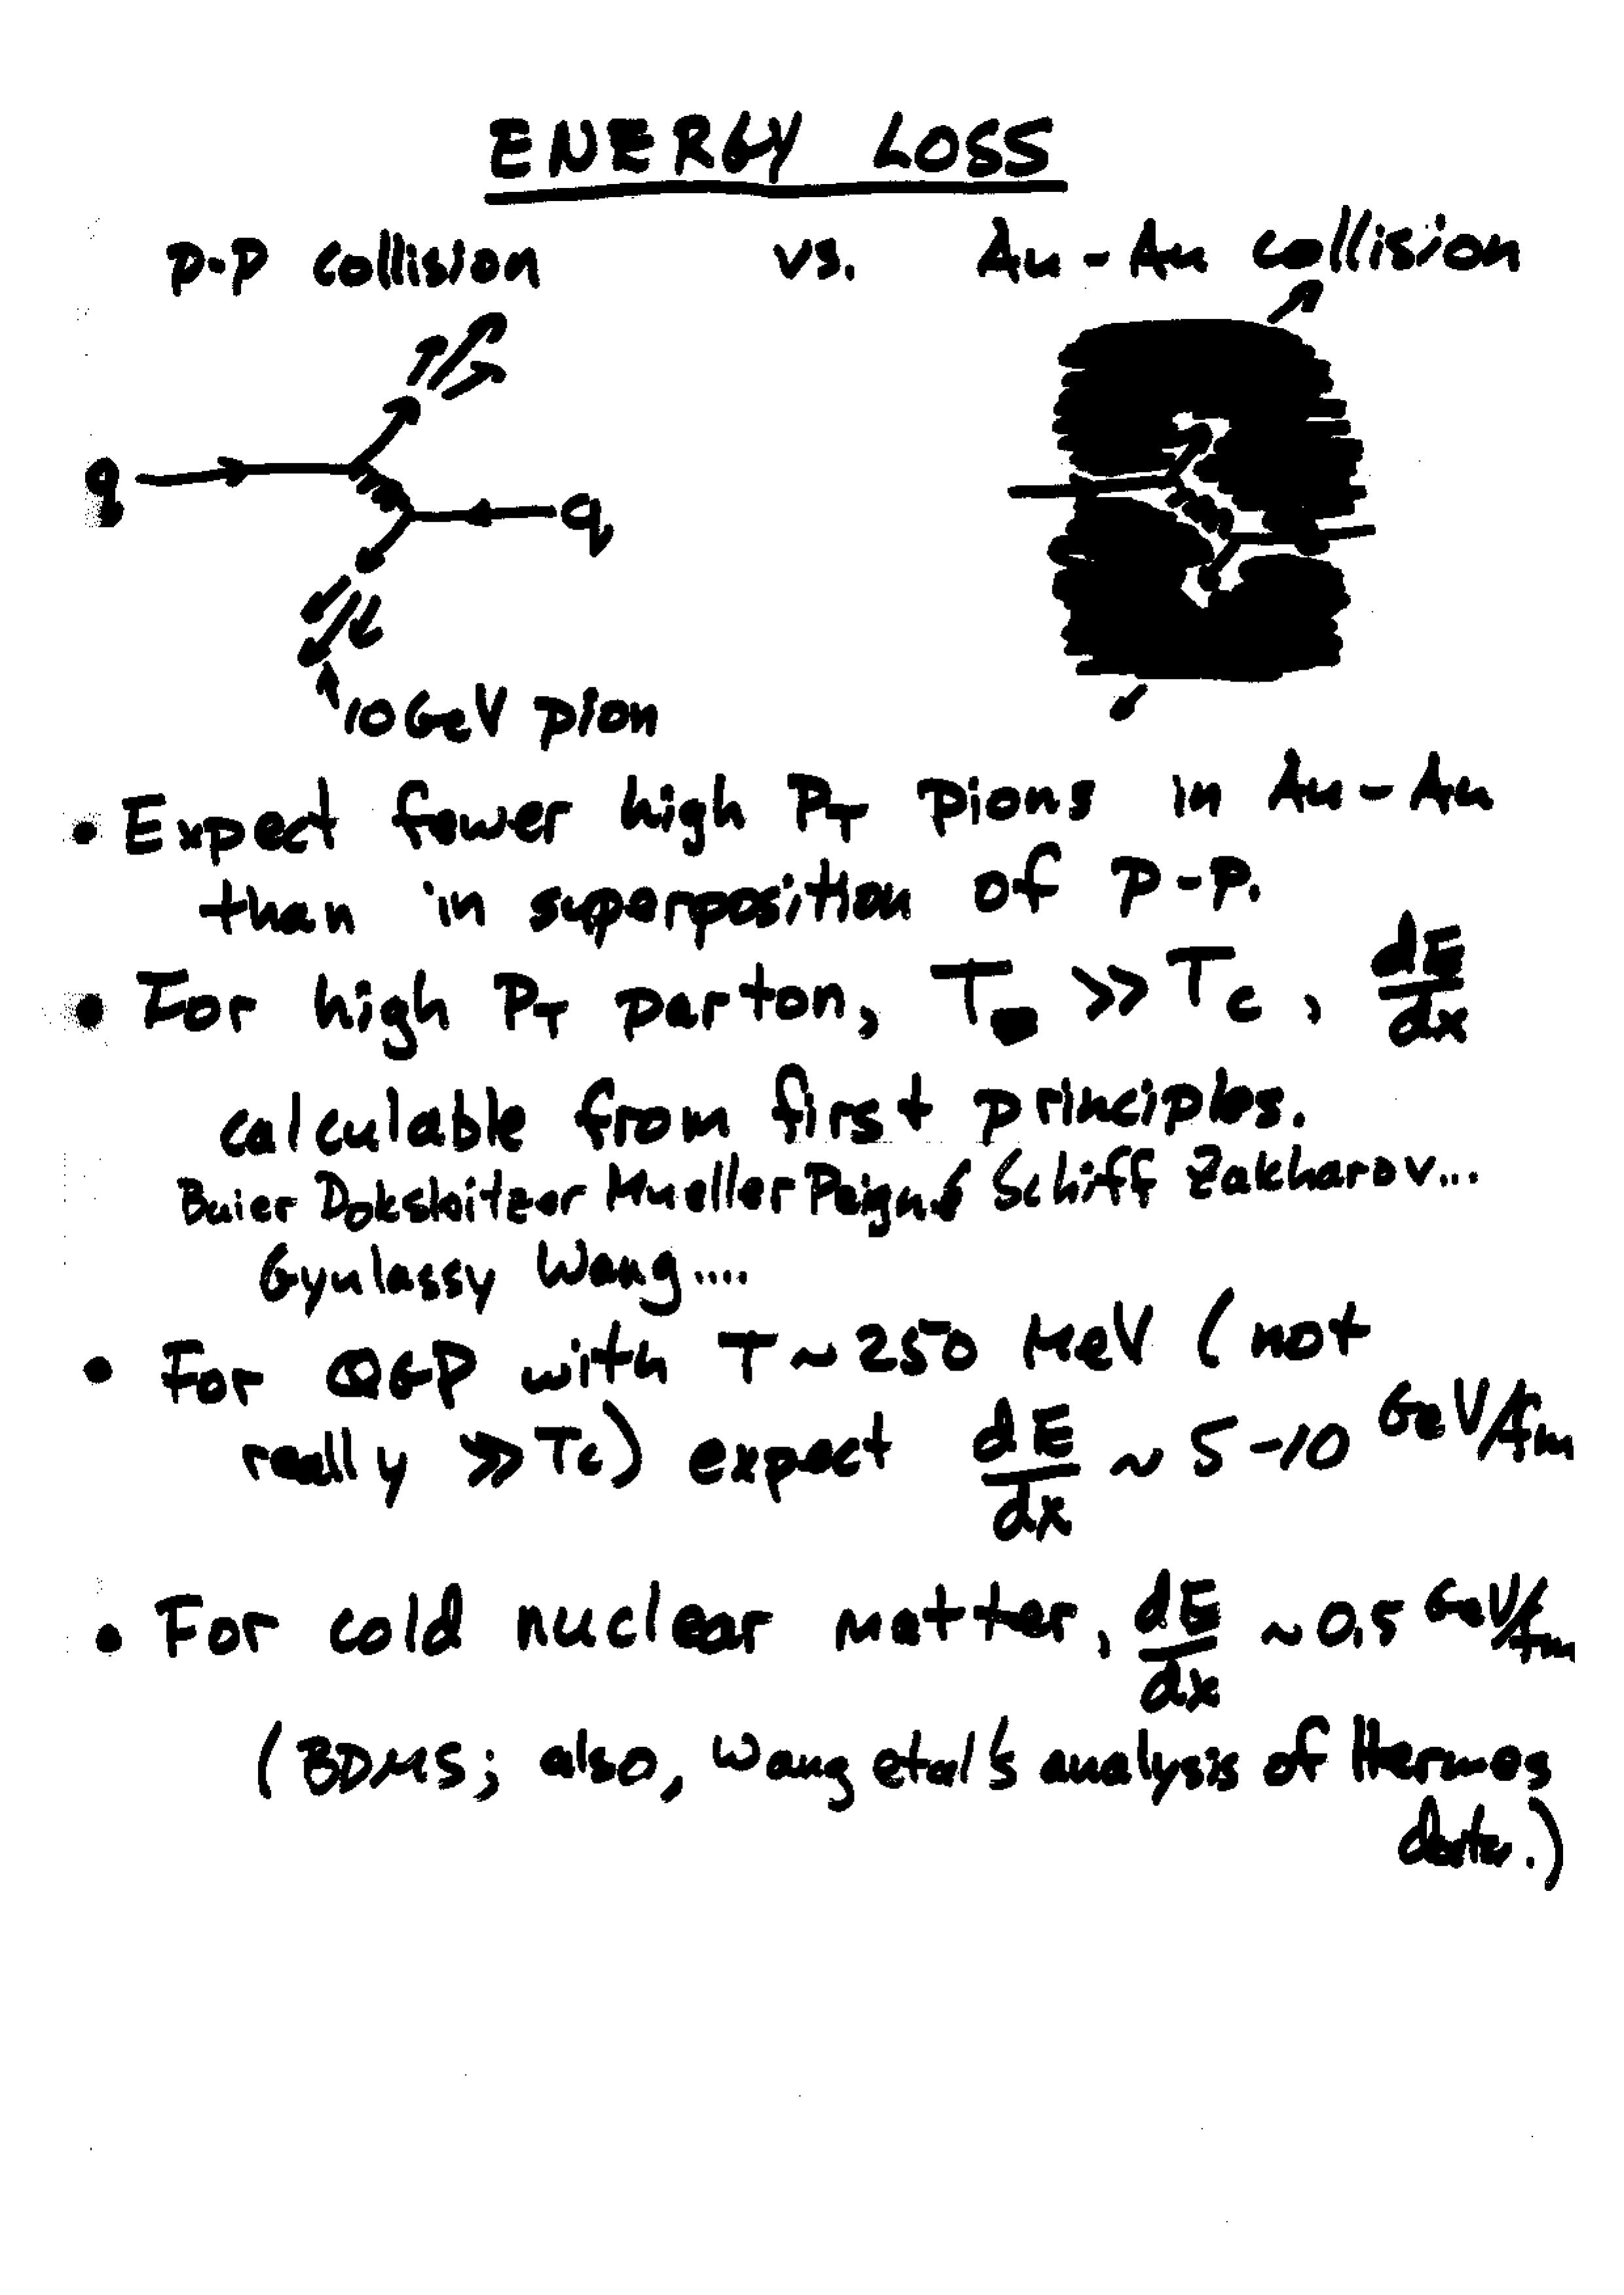 ENERGY LOSS
P-P collision vs. Au-Au collision
q q
10 GeV pion
• Expect fewer high PT pions in Au-Au
than in superposition of P-P.
• For high PT parton, T >> Tc, dE/dx
calculable from first principles.
Baier Dokshitzer Mueller Peigné Schiff Zakharov...
Gyulassy Wang....
• For QGP with T ~ 250 MeV (not
really >> Tc) expect dE/dx ~ 5-10 GeV/fm
• For cold nuclear matter, dE/dx ~ 0.5 GeV/fm
(BDMS; also, Wang et al's analysis of Hermes
data.)